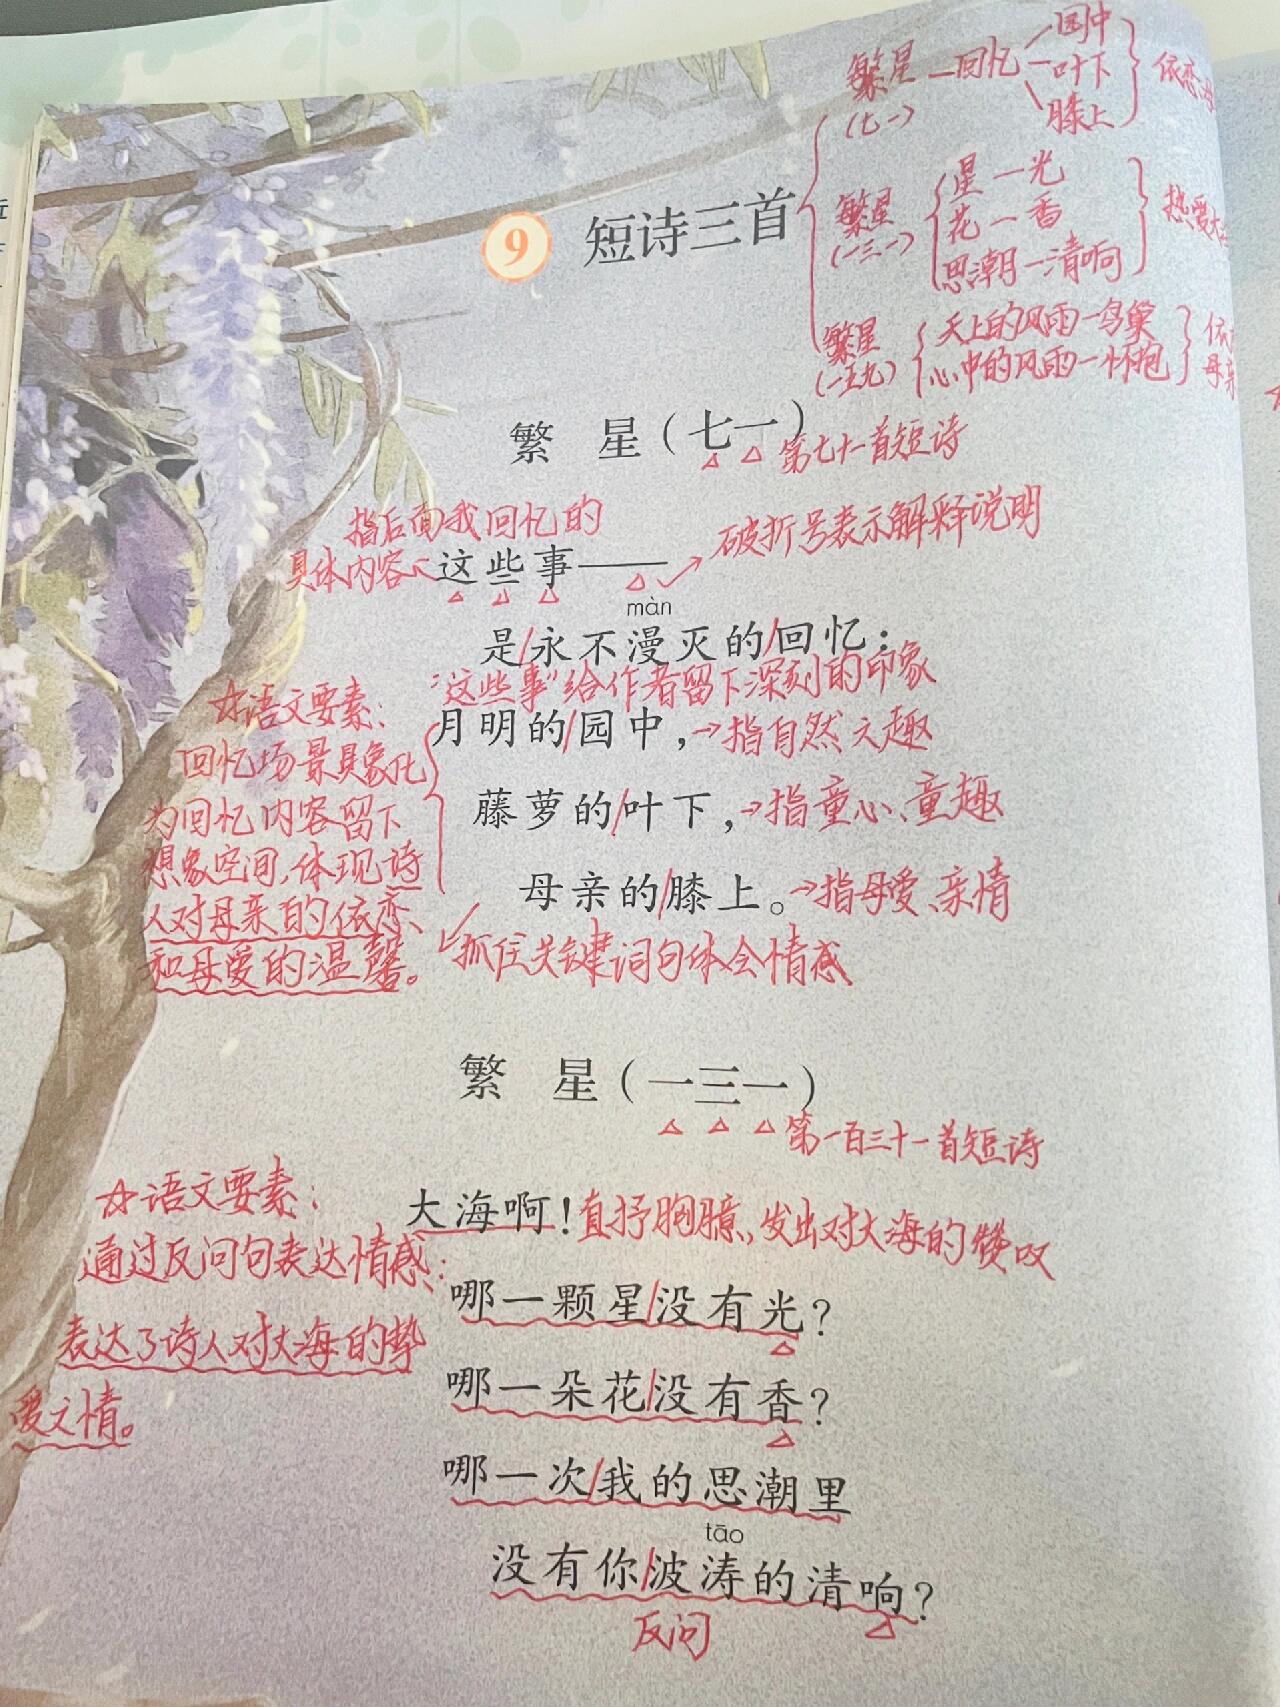 繁星 一 回忆 园中
叶下
膝上
依恋
(七一)
9 短诗三首
繁星
(一三一)
星一光
花一香
思潮一清响
热爱大
繁星
(一五九)
天上的风雨一鸟巢
心中的风雨一怀抱
繁 星（七一）
第七十一首短诗
指后面我回忆的
具体内容
这些事——
破折号表示解释说明
màn
是/永不漫灭的/回忆；
“这些事”给作者留下深刻的印象
月明的/园中，→指自然之趣
藤萝的/叶下，→指童心、童趣
母亲的/膝上。→指母爱、亲情
抓住关键词句体会情感
☆语文要素：
回忆场景具象化
为回忆内容留下
想象空间，体现诗
人对母亲的依恋、
和母爱的温馨。
繁 星（一三一）
第一百三十一首短诗
大海啊！直抒胸臆，发出对大海的赞叹
☆语文要素：
通过反问句表达情感：
表达了诗人对大海的挚
爱之情。
哪一颗星/没有光？
哪一朵花/没有香？
哪一次/我的思潮里
tāo
没有你/波涛的清响？
反问